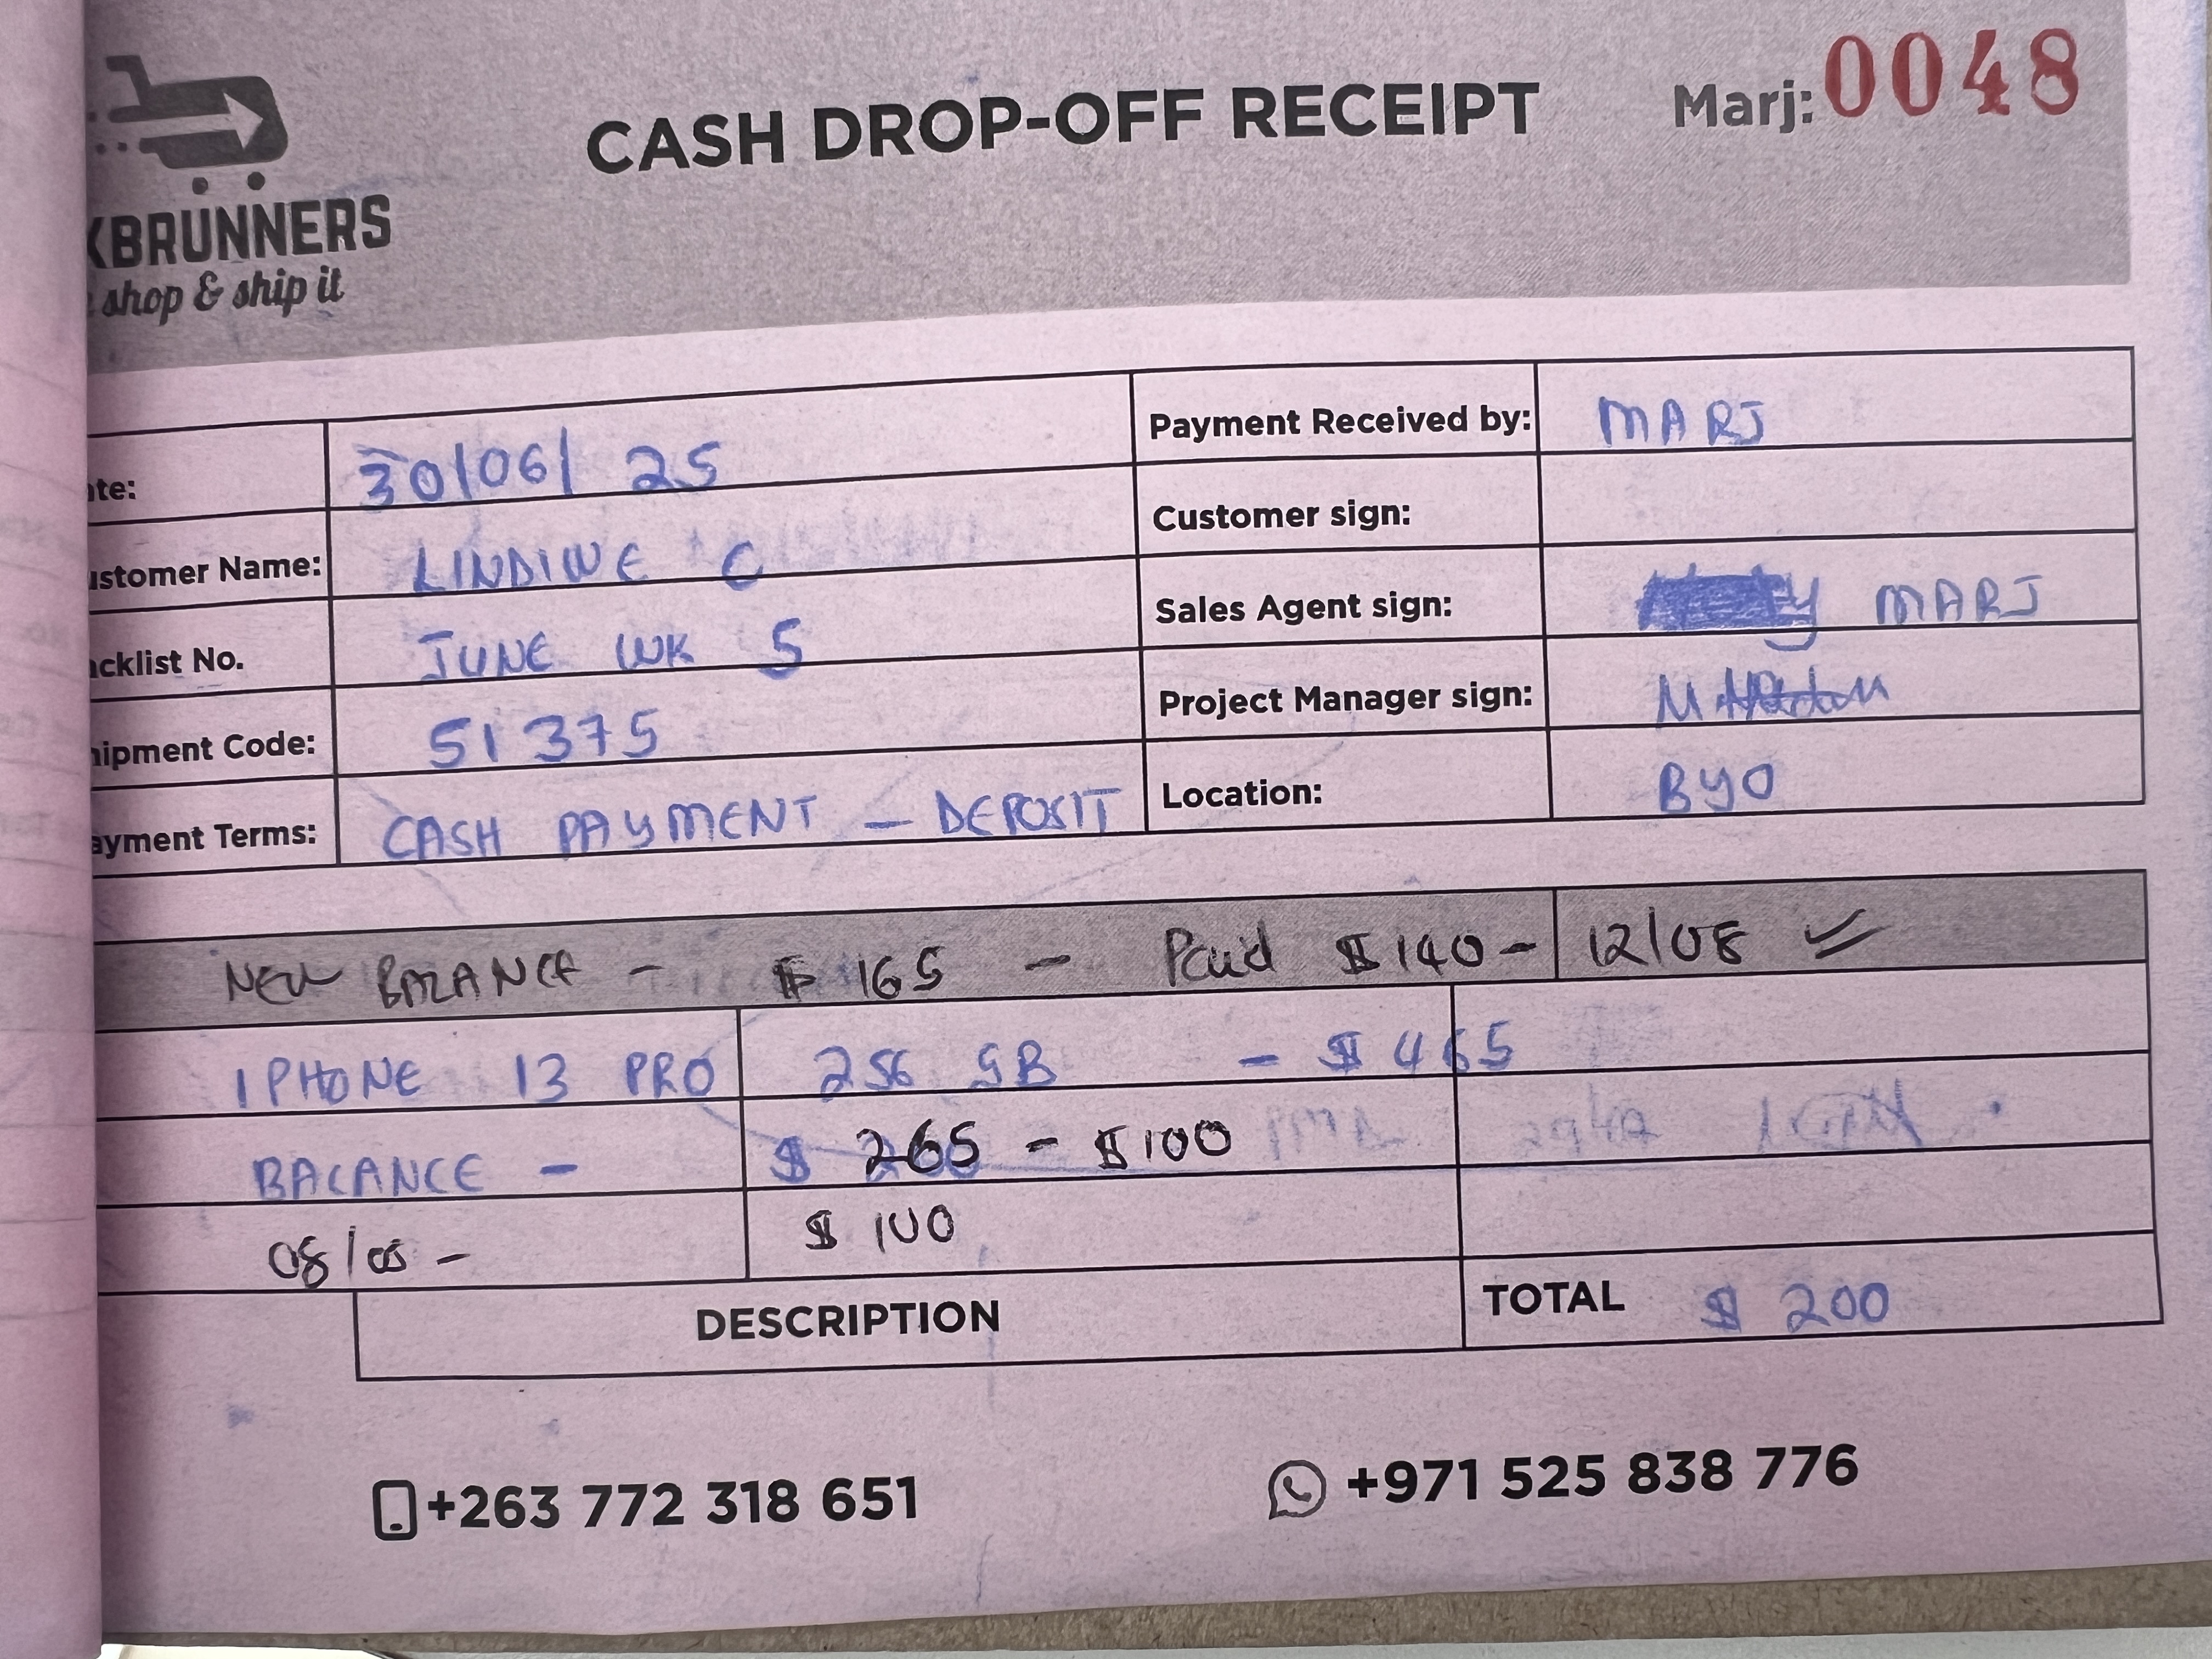 CASH DROP-OFF RECEIPT
Marj: 0048
KBRUNNERS
shop & ship it
ate: 30/06/ 25
ustomer Name: LINDIWE C
cklist No. JUNE WK 5
hipment Code: 51375
ayment Terms: CASH PAYMENT — DEPOSIT
Payment Received by: MARJ
Customer sign:
Sales Agent sign: MARJ
Project Manager sign:
Location: BYO
NEW BALANCE - $ 165 - Paid $140 - 12/08
IPHONE 13 PRO 256 GB - $ 465
BALANCE - $ 265 - $100
08/08 - $ 100
DESCRIPTION
TOTAL $ 200
+263 772 318 651
+971 525 838 776